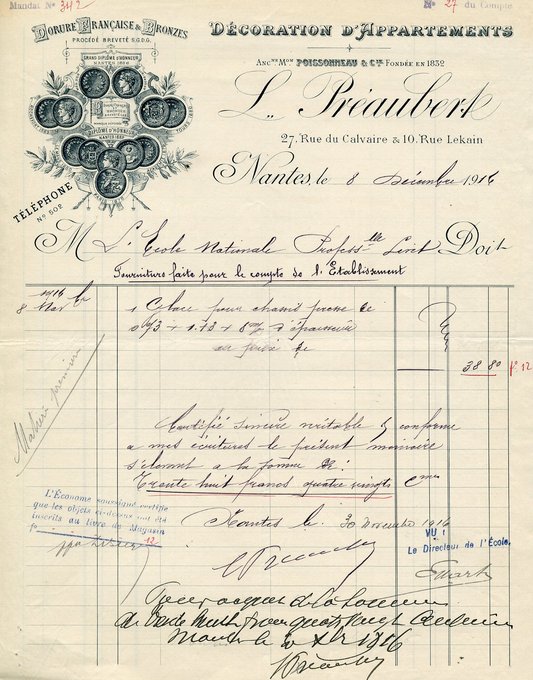 Mandat No 342
No 27 du Compte
DORURE FRANÇAISE & BRONZES
PROCÉDÉ BREVETÉ S.G.D.G.
GRAND DIPLÔME D'HONNEUR
NANTES 1886
DIPLÔME D'HONNEUR
TÉLÉPHONE
No 502
DÉCORATION D'APPARTEMENTS
ANCNE MON POISSONNEAU & CIE FONDÉE EN 1832
L. Préaubert
27, Rue du Calvaire & 10, Rue Lekain
Nantes, le 8 Décembre 1916
M L'Ecole Nationale Professlle Livet Doit
Fourniture faite pour le compte de l'Etablissement
1916
8
1 Glace pour chassis presse de
0,73 + 1.13 + 8 m/m d'épaisseur
au prix de
38 80 fo 12
Matière première
Certifié sincère véritable & conforme
a mes écritures le présent mémoire
s'élevant a la somme de :
Trente huit francs quatre vingts cmes
Nantes le 30 Novembre 1916
L'Économe soussigné certifie
que les objets ci-dessus ont été
inscrits au livre de Magasin
fo 12
VU :
Le Directeur de l'École,
Pour acquit de la somme
de trente huit francs quatre vingt centimes
1916